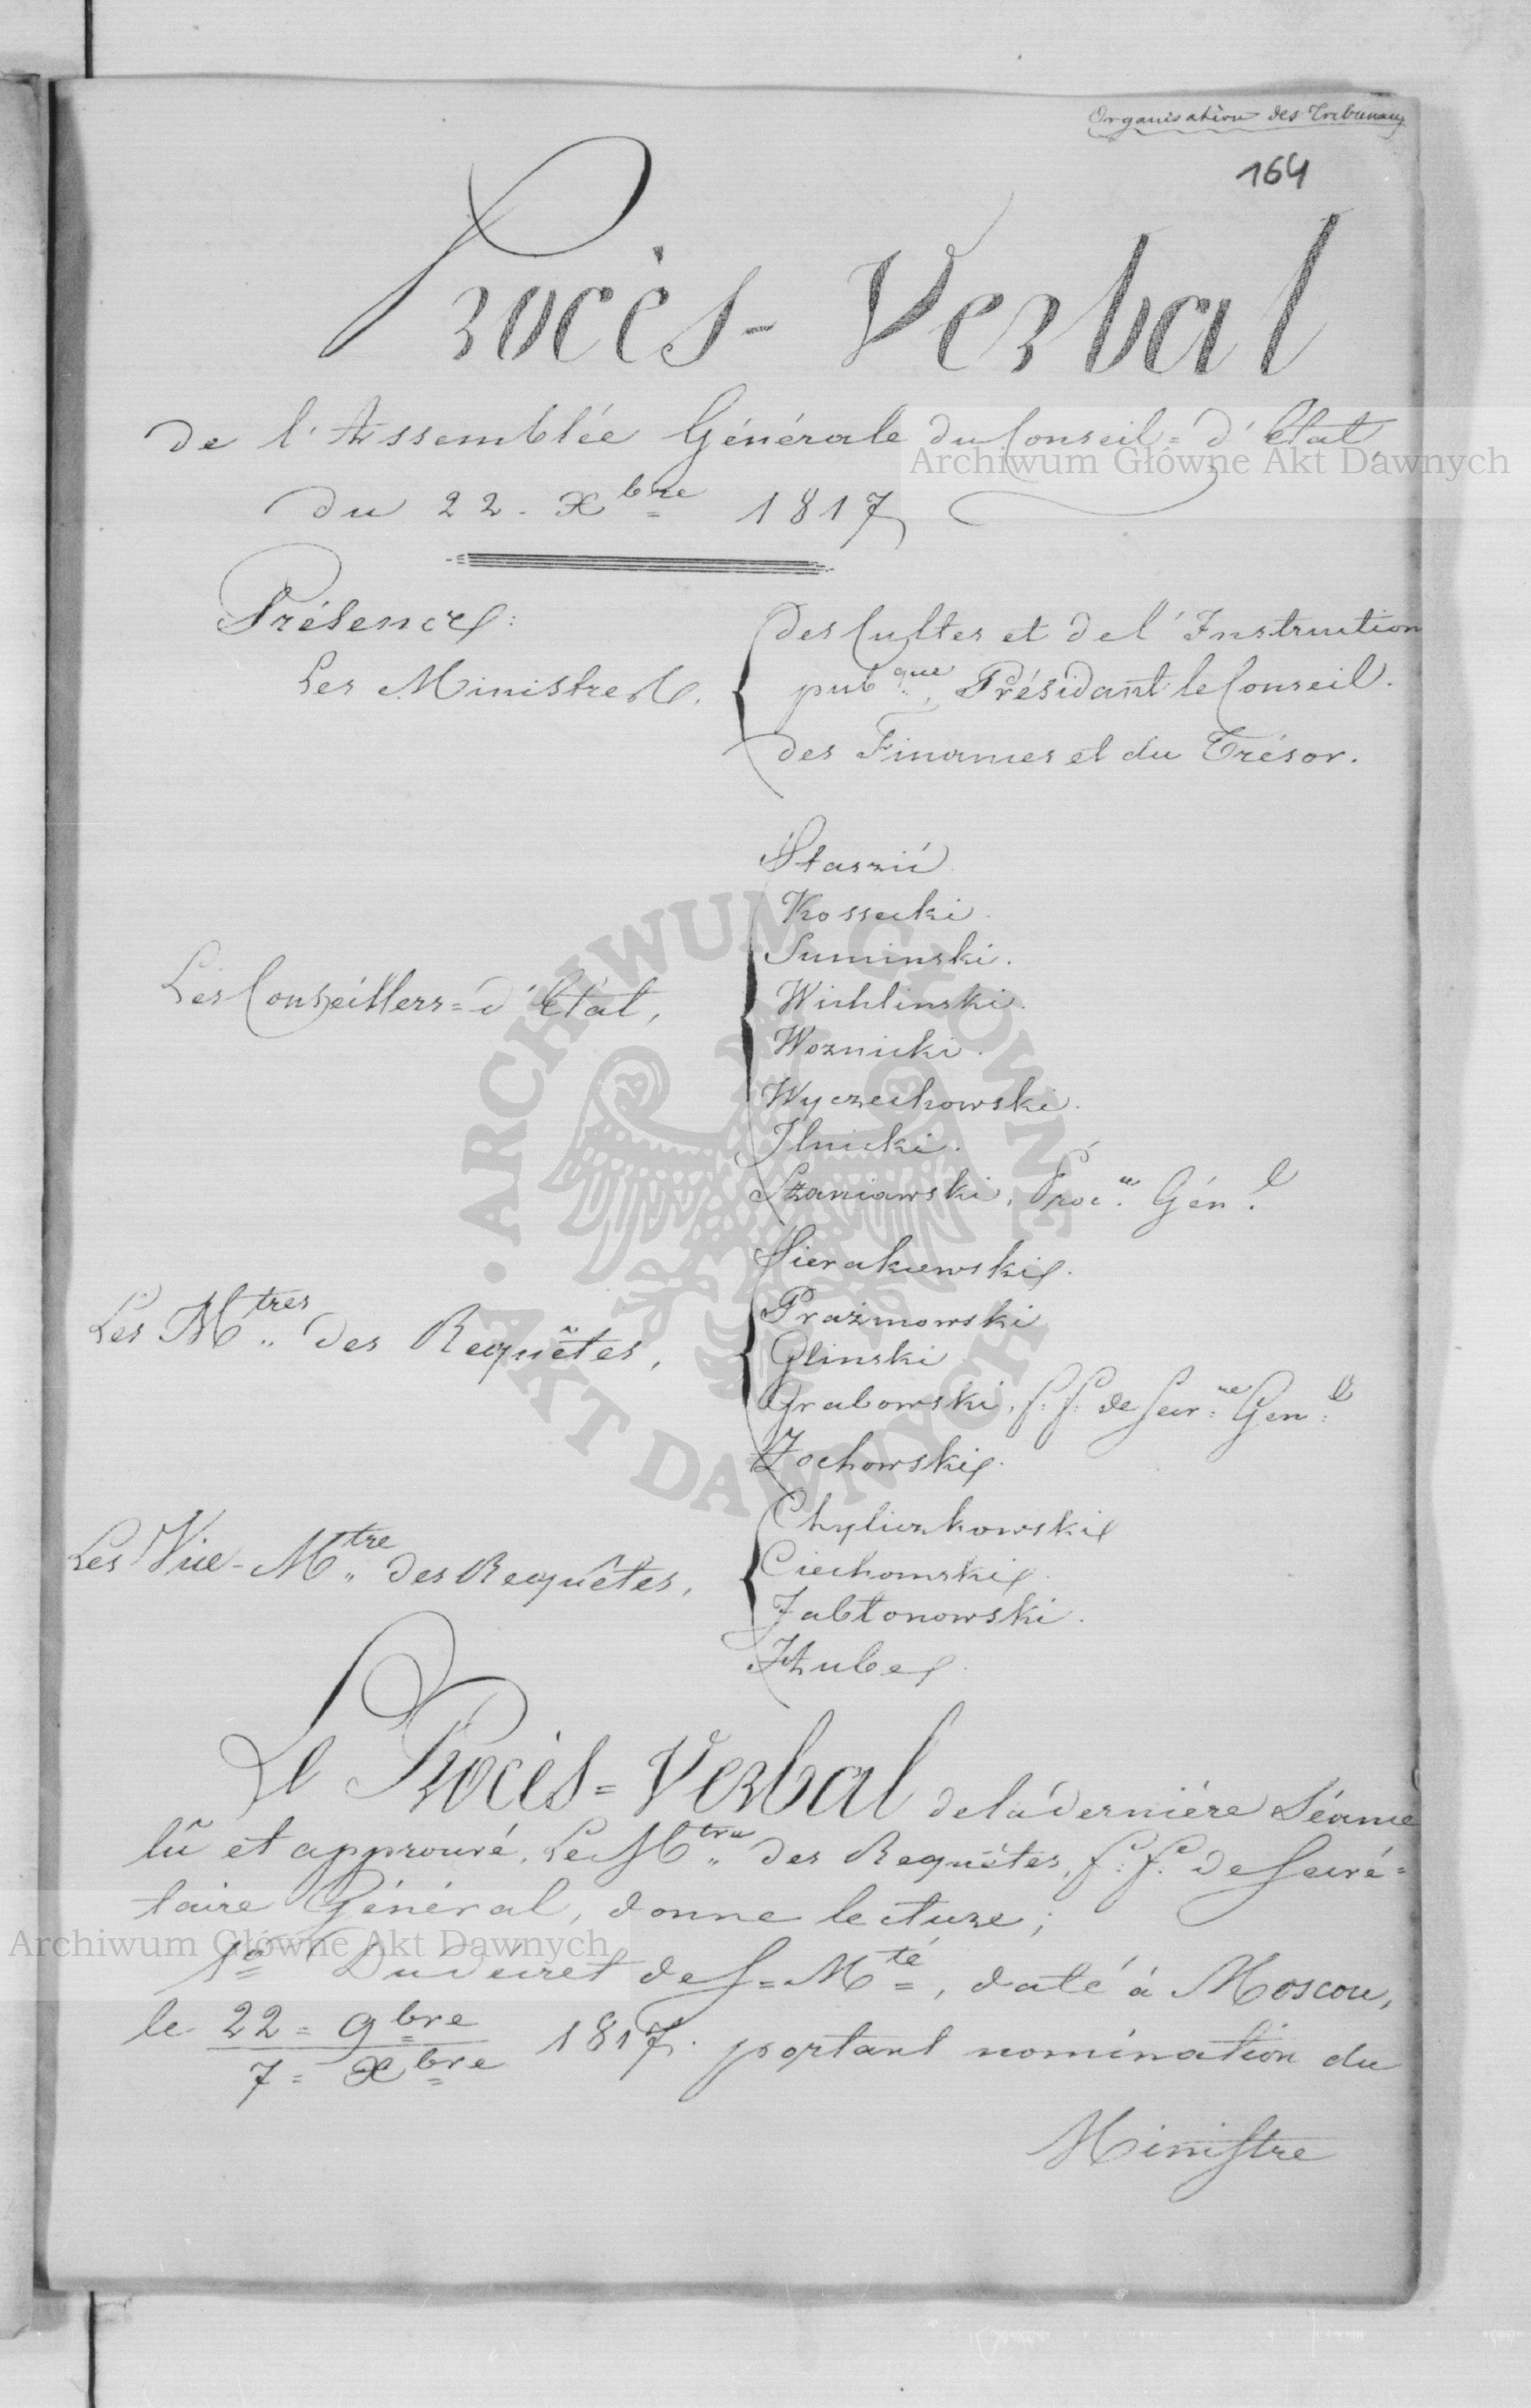 Organisation des Tribunaux
164
Procès-Verbal
de l'Assemblée Générale du Conseil=d'Etat,
Archiwum Główne Akt Dawnych
du 22. Xbre 1817
Présence:
Les Ministres,
des Cultes et de l'Instruction
pubque, Présidant le Conseil.
des Finances et du Trésor.
Les Conseillers=d'Etat,
Staszić
Kossecki.
Suminski.
Wichlinski.
Woznicki.
Wyczechowski.
Ilnicki.
Szaniawski, Procur Génl.
Les Mtres des Requêtes,
Sierakowski.
Prażmowski
Glinski
Grabowski, f. f. de Secrre Genl
Zochowski.
Les Vice-Mtre des Requêtes,
Chyliczkowski
Ciechomski.
Jabłonowski.
Hube.
ARCHIWUM GŁÓWNE AKT DAWNYCH
Le Procès=Verbal de la dernière Séance
lû et approuvé, Le Mtre des Requêtes, f. f. de Secré=
taire Général, donne lecture;
Archiwum Główne Akt Dawnych
1o Du décret de S=Mté, daté à Moscou,
le 22=9bre / 7=Xbre 1817. portant nomination du
Ministre